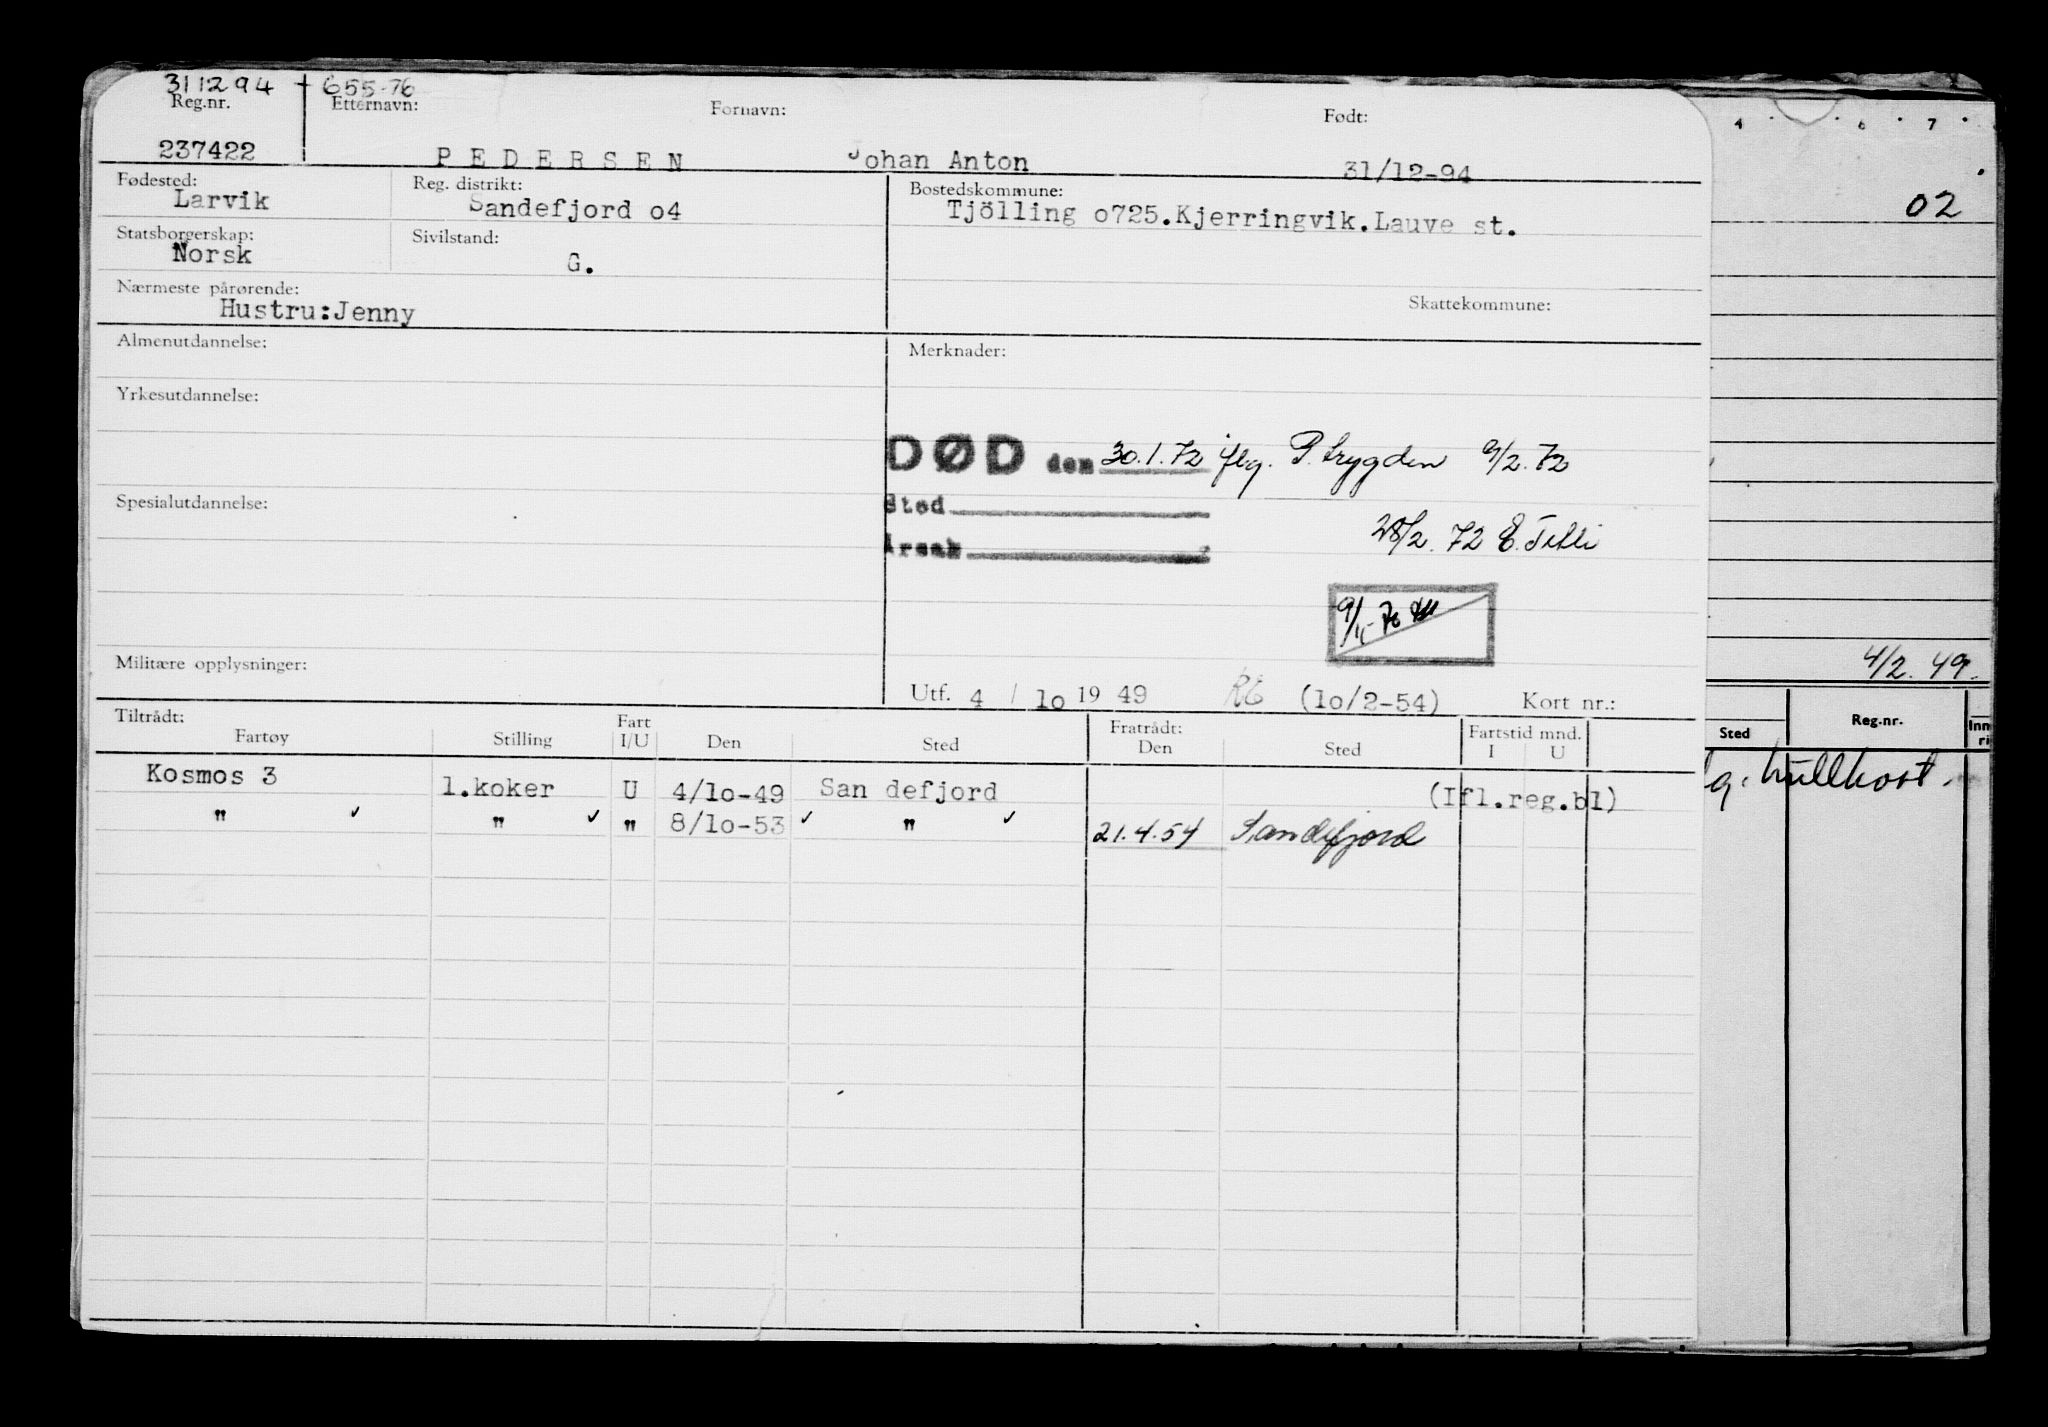 311294 + 655-76
Reg.nr. Etternavn: Fornavn: Født:
237422 PEDERSEN Johan Anton 31/12-94
Fødested: Reg. distrikt: Bostedskommune:
Larvik Sandefjord o4 Tjölling o725.Kjerringvik.Lauve st.
Statsborgerskap: Sivilstand:
Norsk G.
Nærmeste pårørende: Skattekommune:
Hustru:Jenny
Almenutdannelse: Merknader:
Yrkesutdannelse:
DØD den 30.1.72 iflg. P.trygden 9/2.72
Spesialutdannelse: Sted
28/2.72
Årsak
9/11-76
Militære opplysninger:
Utf. 4 / lo 19 49 RE (lo/2-54) Kort nr.:
Tiltrådt: Fart Fratrådt: Fartstid mnd.
Fartøy Stilling I/U Den Sted Den Sted I U
Kosmos 3 l.koker U 4/lo-49 San defjord (Ifl.reg.bl)
" ✓ " ✓ " 8/lo-53 ✓ " ✓ 21.4.54 Sandefjord
4 6 7
02
4/2.49.
Sted Reg.nr. Inn
ri
g. hullkort.